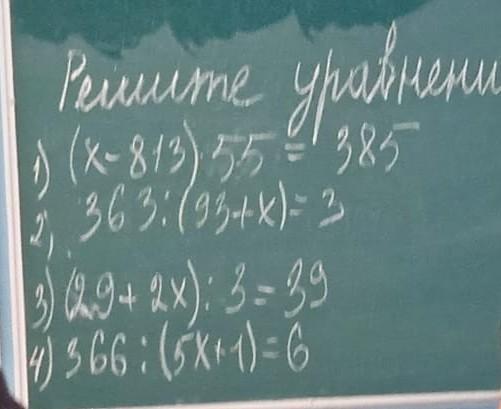 Решите уравнени
1) (x-813)·55 = 385
2) 363:(93+x)=3
3) (29+2x):3=39
4) 366:(5x+1)=6